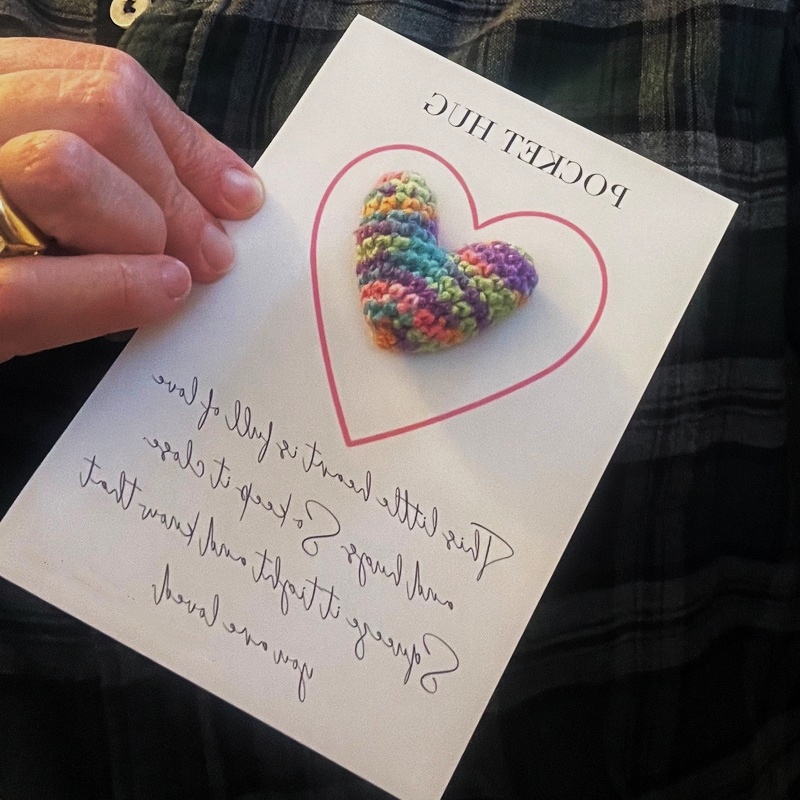 POCKET HUG
This little heart is full of love
and hugs So keep it close
Squeeze it tight and know that
you are loved